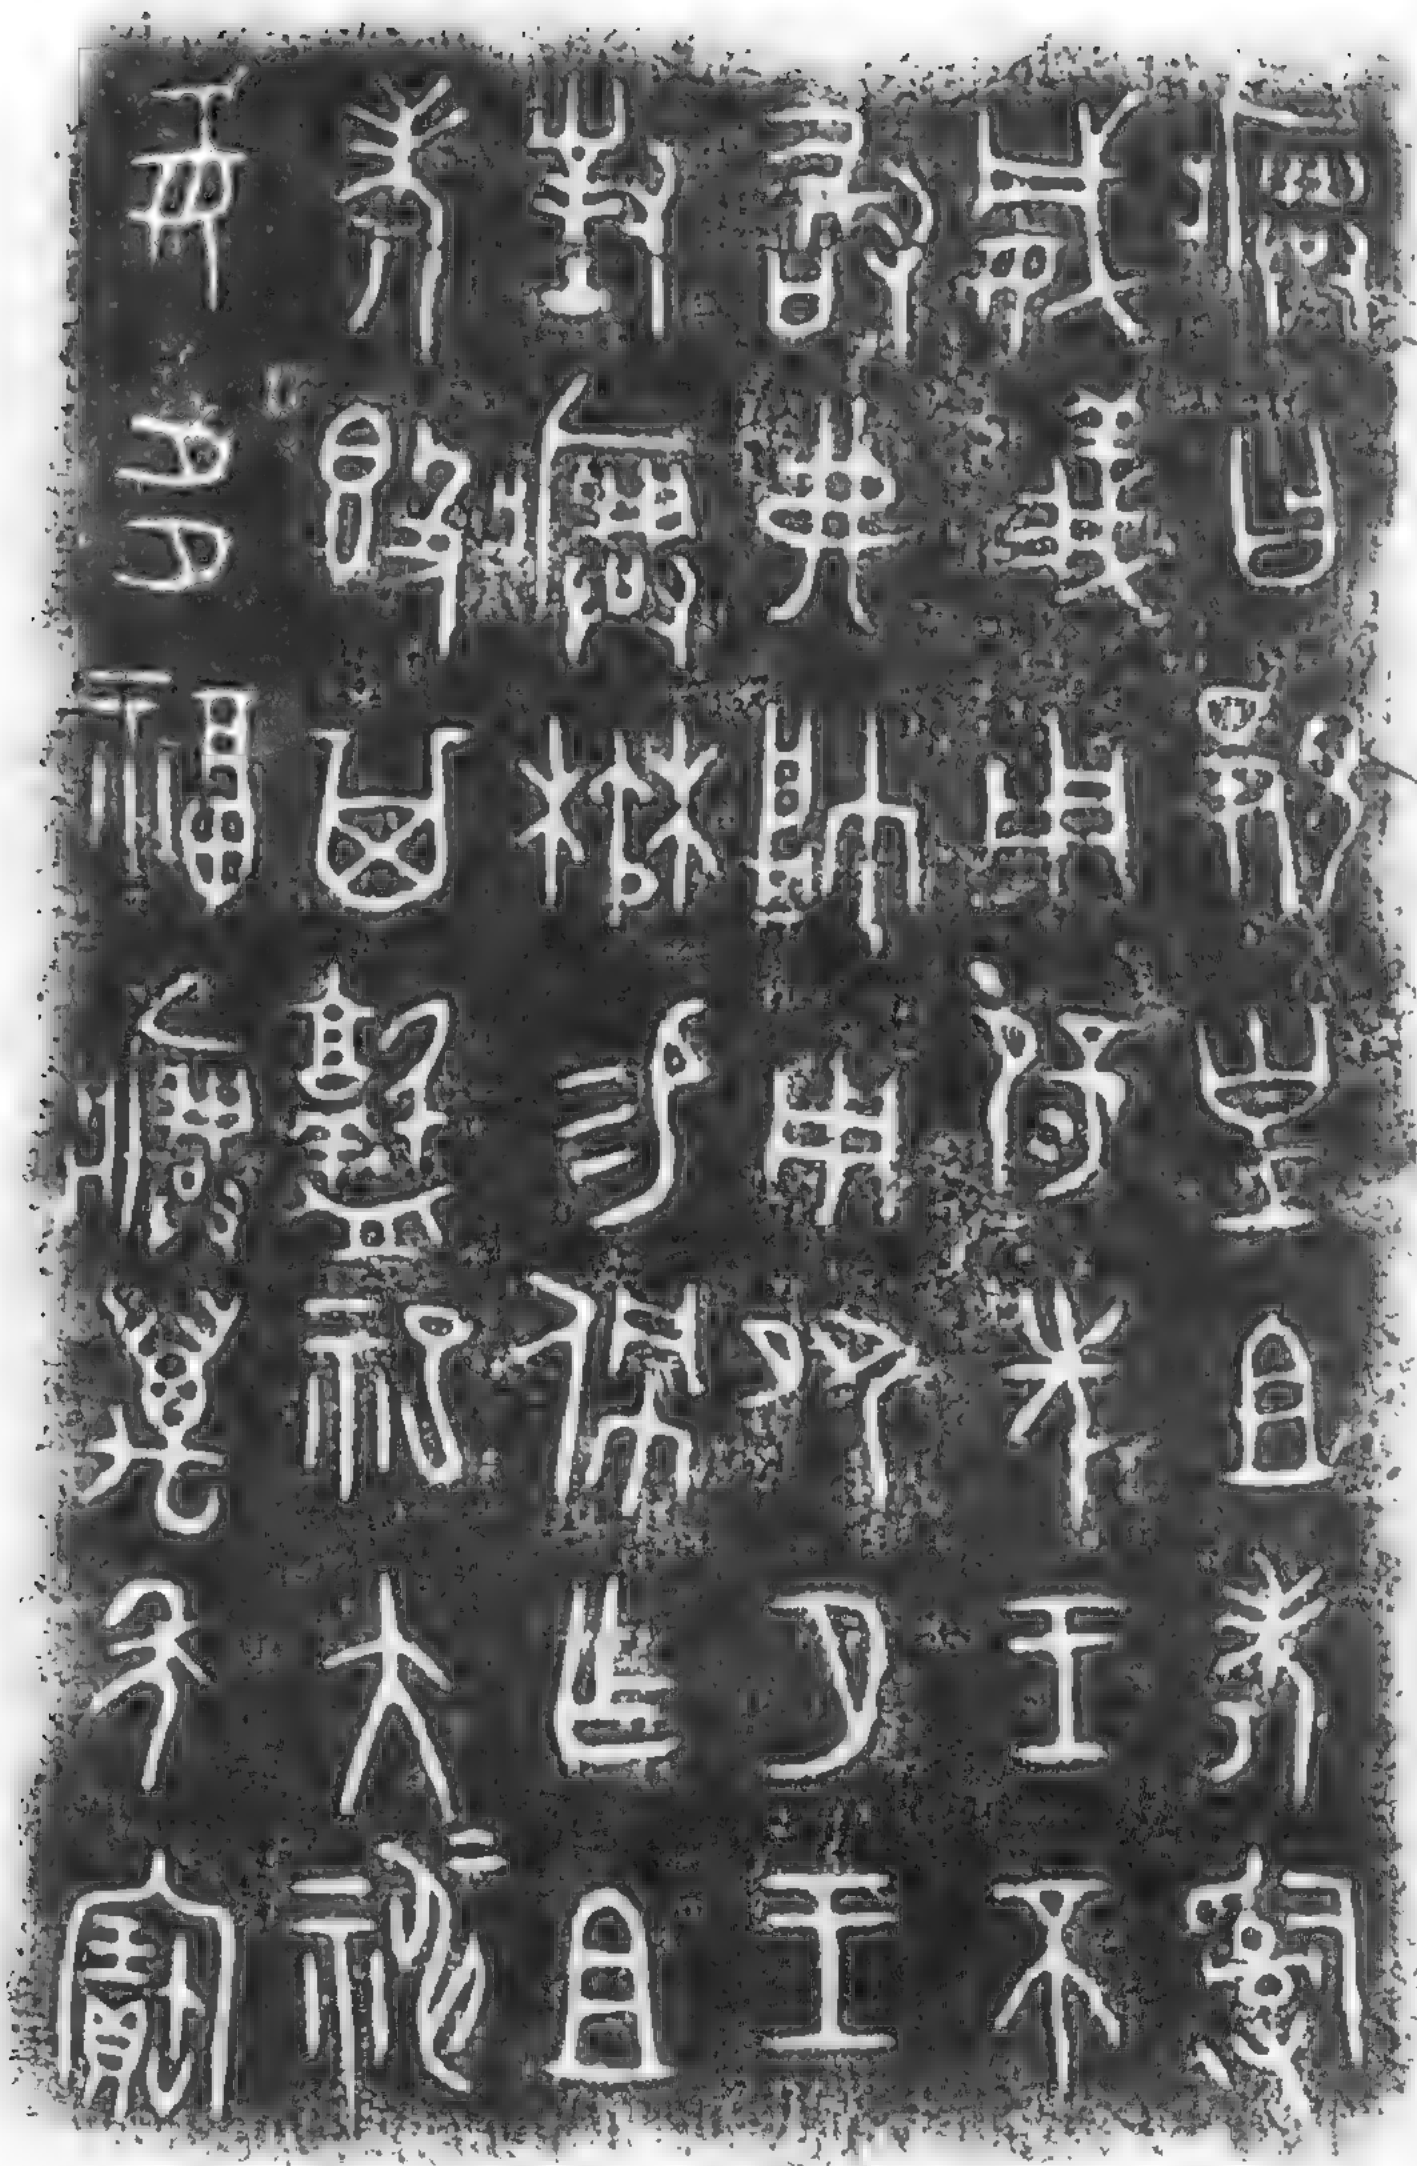 瘨曰覭皇且考𤔲
威義用辟先王不
敢弗帥用夙夕王
對瘨楙易佩乍且
考𣪘其盩祀大神=
妥多福瘨萬年寶